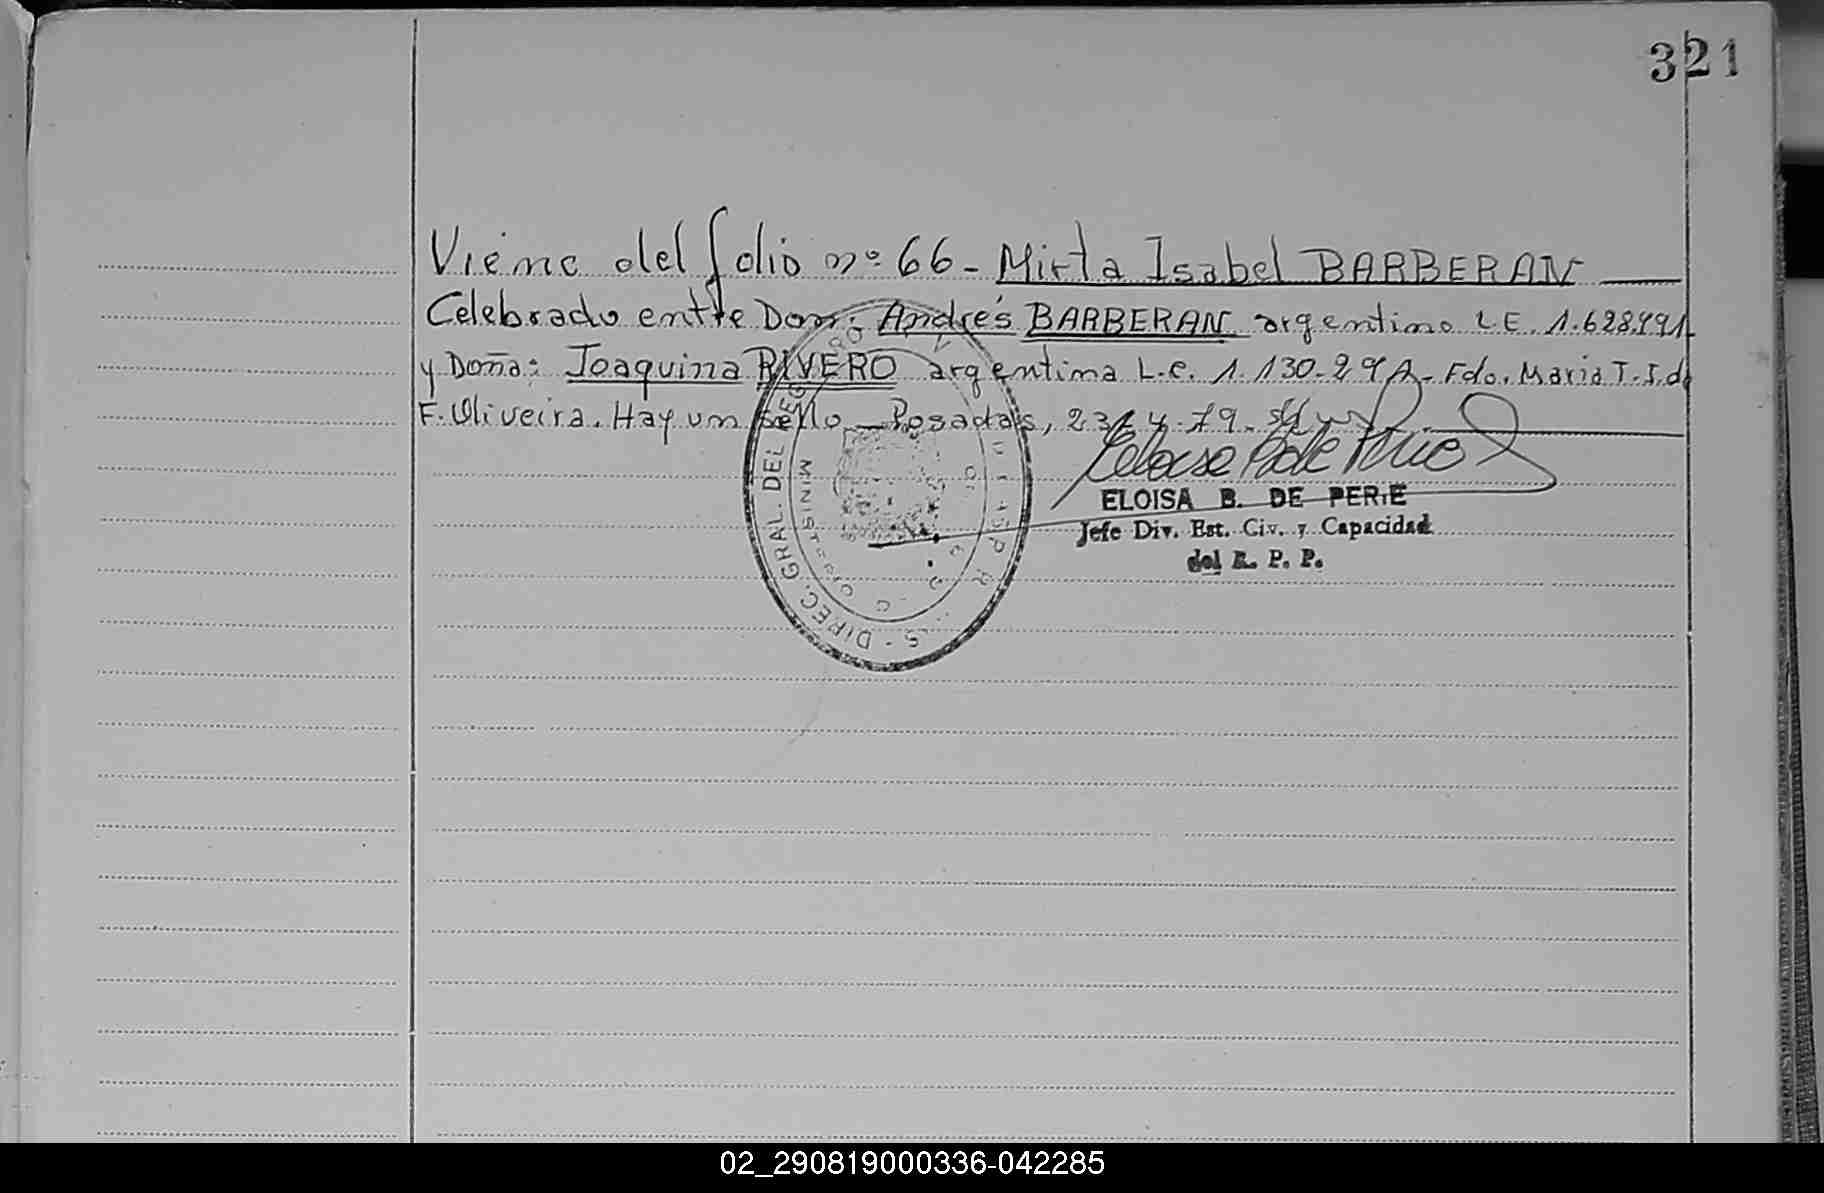 321
Viene del folio nº 66 - Mirta Isabel BARBERAN
Celebrado entre Don: Andrés BARBERAN argentino L.E. 1.628.491
y Doña: Joaquina RIVERO argentina L.C. 1.130.291 - Fdo. Maria T. I. de
F. Oliveira. Hay un sello - Posadas, 23-4-79.
ELOISA B. DE PERIE
Jefe Div. Est. Civ. y Capacidad
del R. P. P.
DIREC. GRAL. DEL REG
02_290819000336-042285